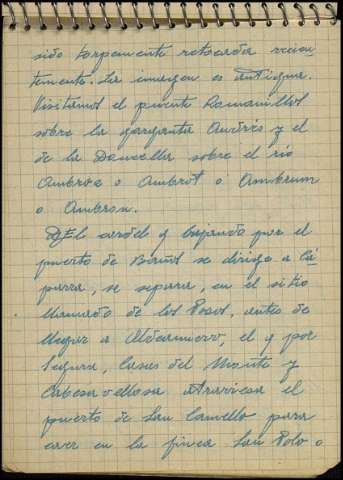 sido torpemente retocada recien-
temente. La imagen es antigua.
Visitamos el puente Romanillos
sobre la garganta Andrés y el
de la Doncella sobre el río
Ambroz o Ambrot o Ambrum
o Ambron.
El bajando por el
puerto de Baños se dirige a Cá-
parra, se separa, en el sitio
llamado de los Pozos, antes de
llegar a Aldeanueva, el q por
Segura, Casas del Monte y
Cabezavellosa atraviesa el
puerto de San Camello para
caer en la finca San Polo o